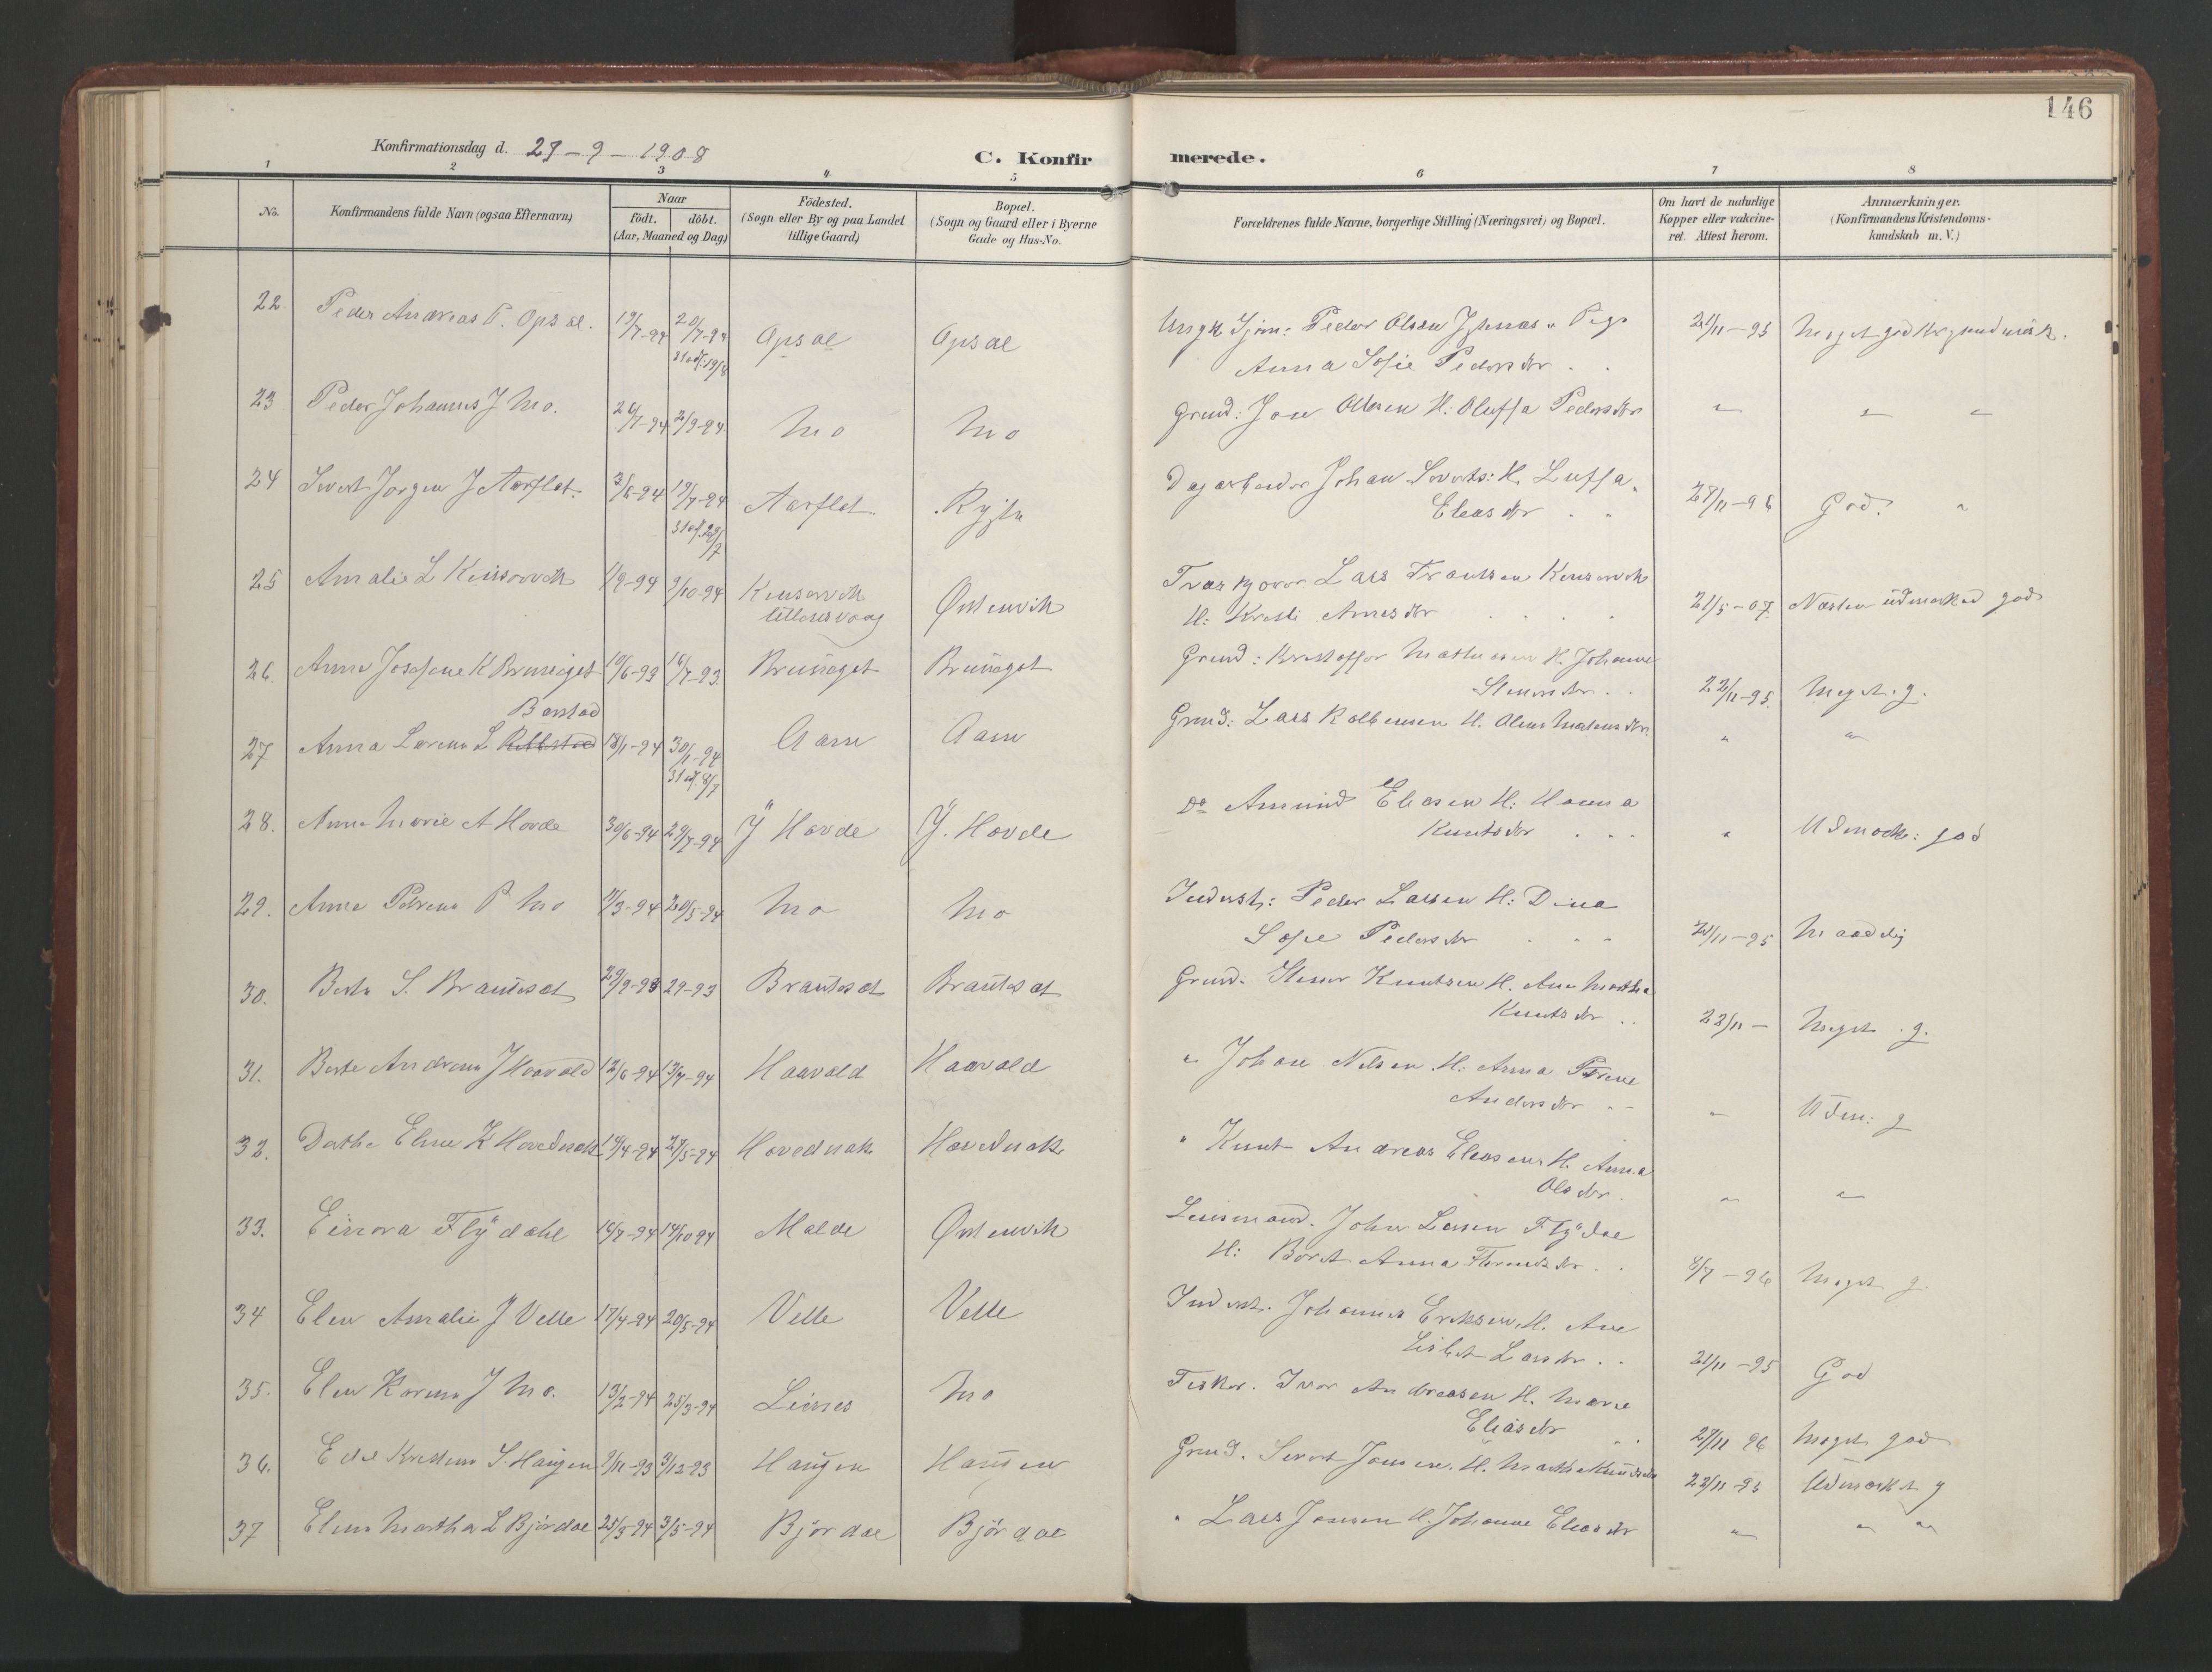 146
Konfirmationsdag d. 29-9-1908
C. Konfirmerede.
1 2 3 4 5 6 7 8
No.
Konfirmandens fulde Navn (ogsaa Efternavn)
Naar
födt. döbt.
(Aar, Maaned og Dag)
Födested.
(Sogn eller By og paa Landet
tillige Gaard)
Bopæl.
(Sogn og Gaard eller i Byerne
Gade og Hus-No.
Forældrenes fulde Navne, borgerlige Stilling (Næringsvei) og Bopæl.
Om havt de naturlige
Kopper eller vakcine-
ret. Attest herom.
Anmærkninger.
(Konfirmandens Kristendoms-
kundskab m. V.)
22. Peder Andreas P. Opsal. 19/7-94 20/7-94 Opsal Opsal Ungk. Peder Olsen 21/11-95
Anna Sofie Pedersdtr
23 Peder Johannes J Mo. 26/7-94 2/9-94 Mo Mo Grmd: Jon Olsen H: Oluffa Pedersdtr " " "
24 Sivert Jörgen J Aarflot. 3/6-94 19/7-94 Aarflot Dagarbeider Johan Siverts: H. Luffa
Eleasdtr 27/11-96 God. "
25 Amalie L 1/9-94 9/10-94 Örstenvik Lars Frantsen
H: Kristi Arnesdtr 21/5-07 Næsten udmærked god
26. Anna Josefine K Bruneget 10/6-93 16/7-93 Bruneget Bruneget Grmd: Kristoffer H. Johanne
22/11-95 Meget g.
Barstad
27 Anna Lovena L 18/1-94 30/1-94 Aam Aam Grmd: Lars H. " "
28. Anna Marie A Hovde 30/6-94 29/7-94 Y Hovde Y. Hovde Do Amund Eliasen H: Hanna
Knutsdtr " Udmærk: god
29. Anne Petrine P Mo 11/3-94 20/5-94 Mo Mo Inderst: Peder Larsen H: Dina
Sofie Pedersdtr 21/11-95 Maadelig
30. Berte S. Brautaset 29-93 Brautaset Brautaset Grmd: Steinar Knutsen H. Ane Martha
Knutsdtr 22/11- Meget g.
31. Berte Andrina J Haavold 12/6-94 Haavold Haavold " Johan Nilsen H: Anna
Andersdtr " Udm: g
32. Dorthe Eline K Hovednak 19/4-94 27/5-94 Hovednak Hovednak " Knut Andreas Eleasen H. Anna
Olsdtr. " "
33. Flÿdahl 16/7-94 14/10-94 Molde Örstenvik Lensmand. John Larsen Flÿdal
H: Berit Anna 8/7-96 Meget g.
34 Elen Amalie J Velle 17/4-94 20/5-94 Velle Velle Inderst. Johannes Eriksen, H. Ane
Lisbet Larsdtr 21/11-95 God
35. Elen Karina J Mo. 13/2-94 25/3-94 Mo Fisker. Ivar Andreasen H. Marie
Eliasdtr 27/11 96 Meget god
36. Kristine S. Haugen 9/11-93 3/12-93 Haugen Haugen Grmd. Sivert Jonsen. H. Marthe Knudsdtr 22/11-95 Udmærket g
37 Eline Martha L Björdal 25/3-94 3/5-94 Björdal Björdal " Lars Jonsen H. Johanne Eleasdtr " " "